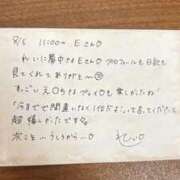 8/6 11:00〜 Eさん♡
れいに夢中なEさん♡プロフィールも日記も
見てくれてありがと〜
すっごいえ○ちな プレイ○も楽しかたね♡
「今までで間違いなく1位だよ」って言ってくださって
超嬉しかたです
次こそ…うしろから…♡
れい♡